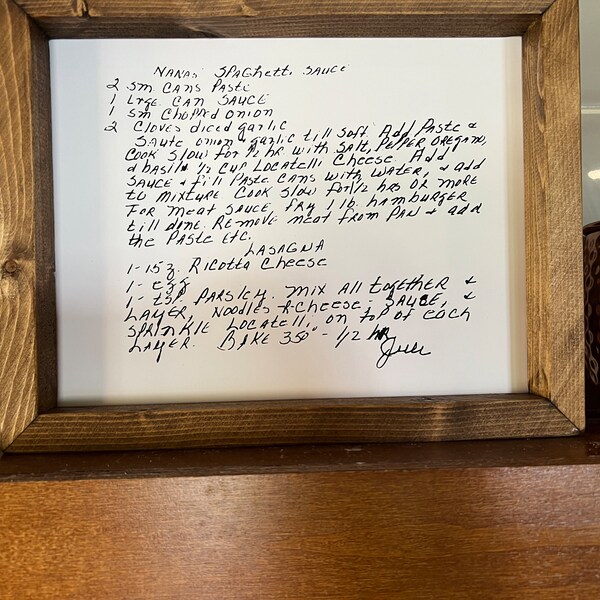 NANAS SPAGhetti SAUCE
2 SM CANS PASTE
1 LRGE CAN SAUCE
1 SM ChOPPED ONION
2 Cloves diced garlic
Saute onion & garlic till soft. Add PASTE &
COOK SLOW for 1/2 hr with SALT, PEPPER OREGANO,
& basil & 1/2 CUP LOCATELLI CHEESE. Add
SAUCE & fill PASTE CANS with WATER, & add
to MIXTURE COOK SLOW for 1/2 hrs OR MORE
FOR MEAT SAUCE fry 1 lb. hAMBURGER
till done. REMOVE MEAT FROM PAN & add
the PASTE Etc.
LASAGNA
1-15 z. RICOTTA ChEESE
1- Egg
1- tsp. PARSLEY. MIX All together &
LAYER, NOODLES & ChEESE- SAUCE, &
SPRINKLE LOCATELLI, ON top OF EACh
LAYER. BAKE 350° - 1/2 hR